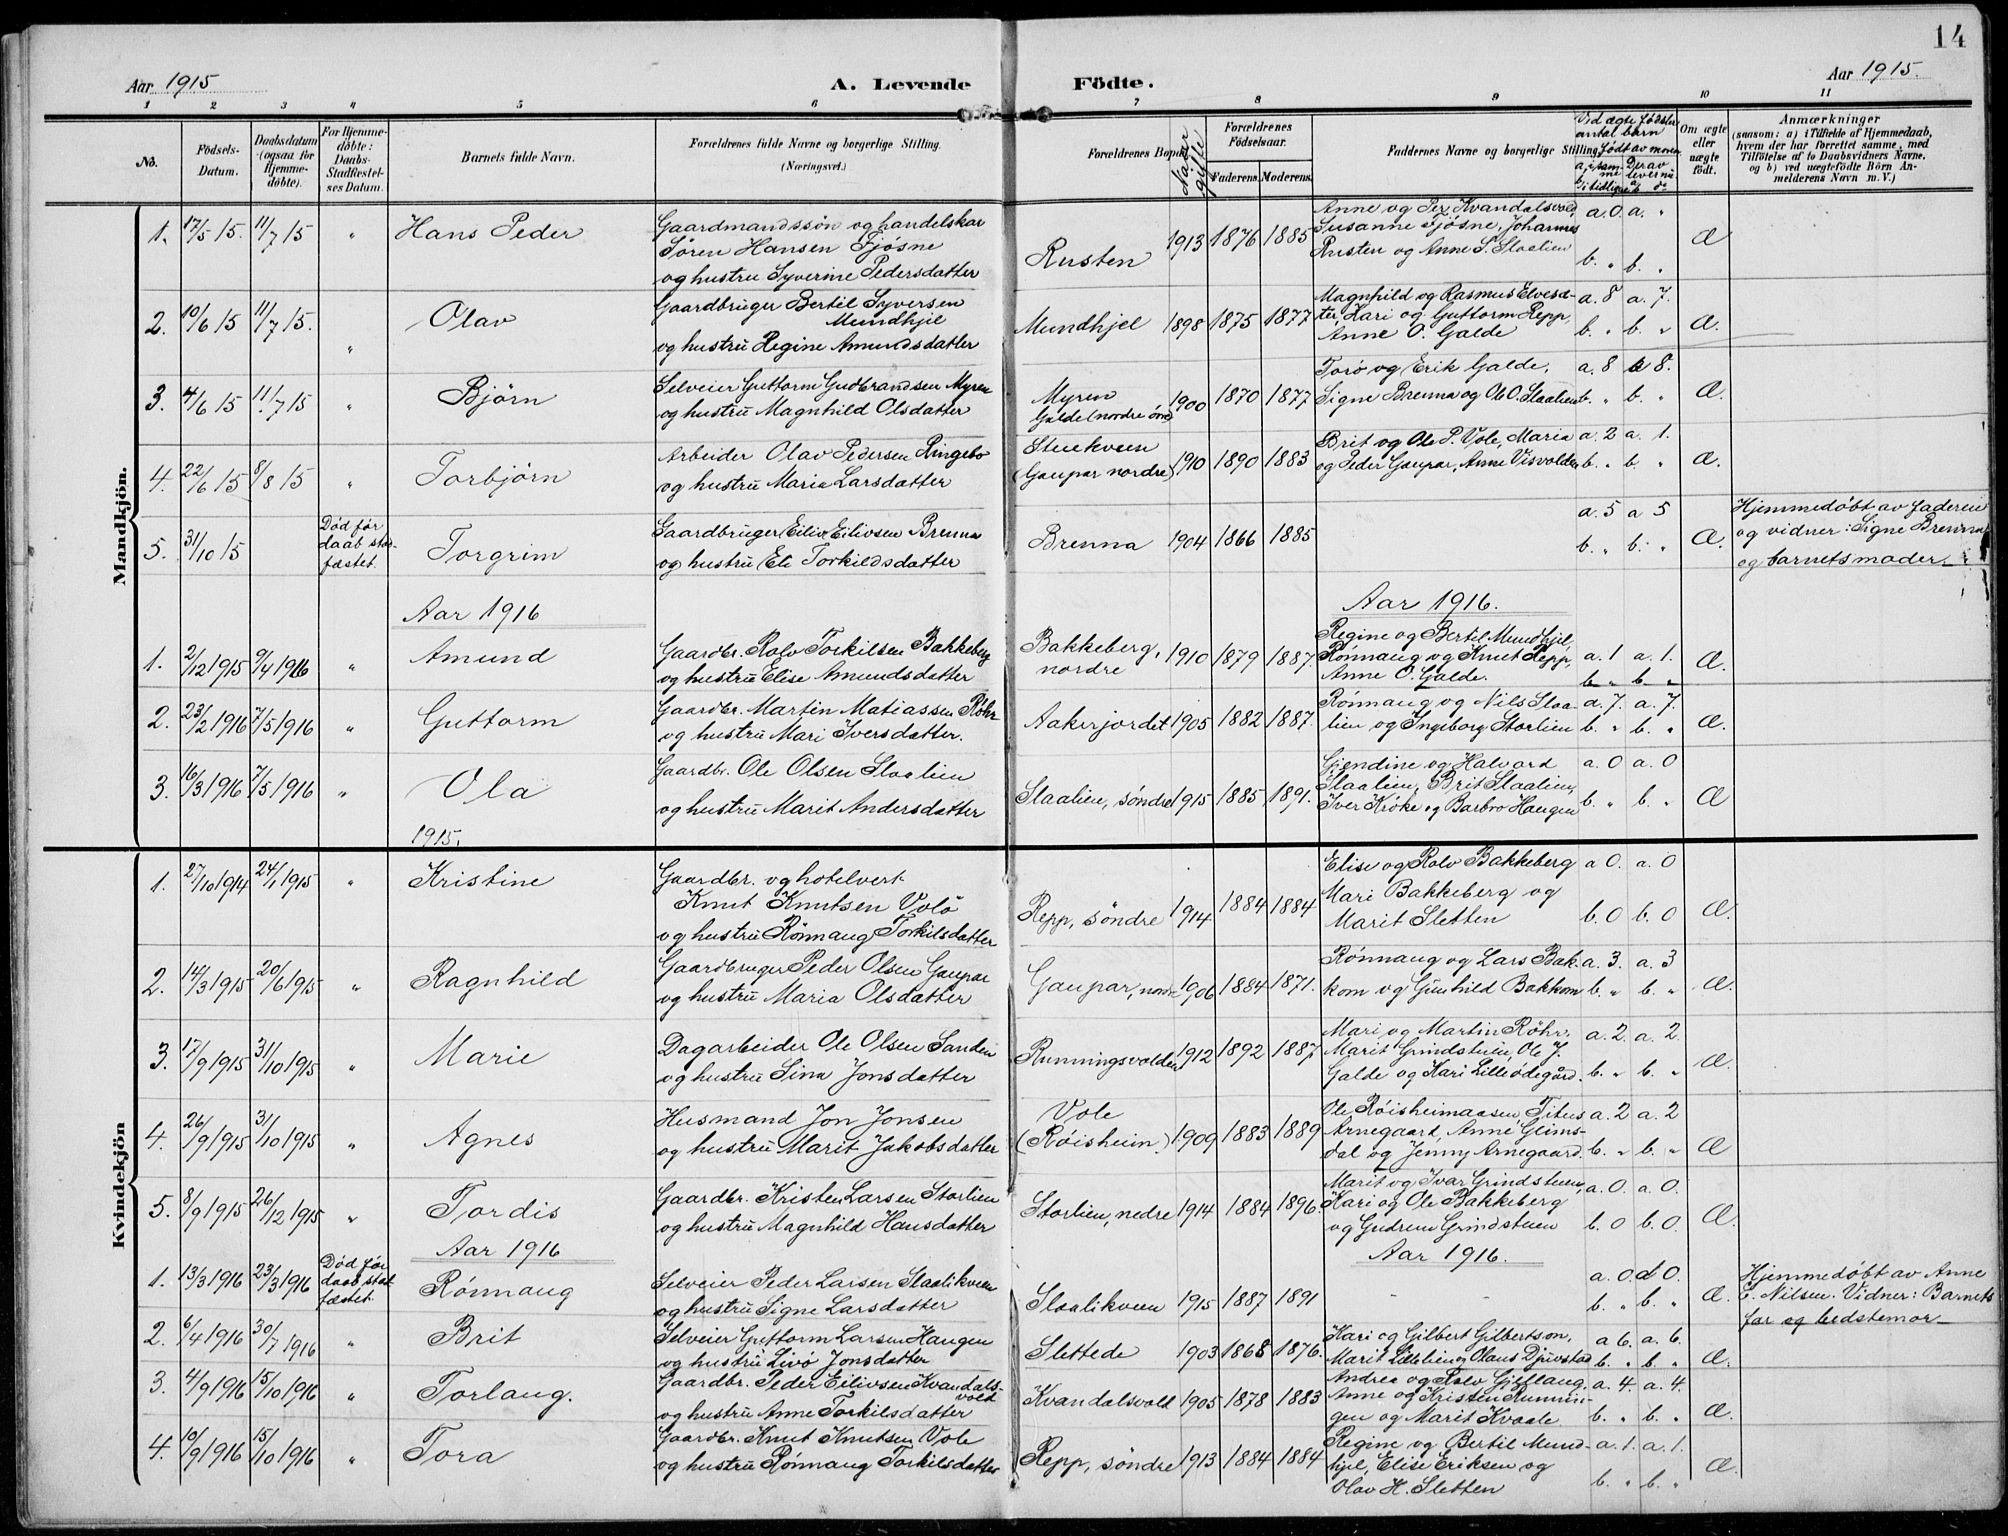 14
Aar 1915 A. Levende Födte. Aar 1915.
1 2 3 4 5 6 7 8 9 10 11
No.
Födsels-Datum.
Daabsdatum (ogsaa for Hjemmedøbte).
For Hjemmedøbte: Daabs-Stadfæstelses Datum.
Barnets fulde Navn.
Forældrenes fulde Navne og borgerlige Stilling. (Næringsvei.)
Forældrenes Bopæl
Naar gifte
Forældrenes Födselsaar.
Faderens. Moderens.
Faddernes Navne og borgerlige Stilling.
Vid ægte fødsler antal barn født av moren
Om ægte eller uægte født.
Anmærkninger
(saasom: a) i Tilfælde af Hjemmedaab,
hvem der har forrettet samme, med
Tilføielse af to Daabsvidners Navne.
og b) ved uægtefødte Börn Anmelderens Navn m. V.)
Mandkjön.
1. 17/5 15. 11/7 15 " Hans Peder Gaardmandssøn og handelskar Rusten 1913 1876 1885 Anne og Per Kvandalsvold, a. 0 a. " Æ
Søren Hansen Fjøsne Susanne Fjøsne, Johannes
og hustru Syverine Pedersdatter Rusten og Anne S. Slaalien b. " b. "
2. 10/6 15 11/7 15. " Olav Gaardbruger Bertil Syversen Mundhjel 1898 1875 1877 Magnhild og Rasmus Elvesæ- a. 8 a. 7. Æ.
Mundhjel ter, Kari og Guttorm Repp,
og hustru Regine Amundsdatter Anne O. Galde b. " b. "
3. 4/6 15 11/7 15 " Bjørn Selveier Guttorm Gudbrandsen Myren Myren 1900 1870 1877 Torø og Erik Galde, a. 8 b 8. Æ.
og hustru Magnhild Olsdatter Galde (nordre øvre) Signe Brenna og Ole O. Slaalien b. " b. "
4. 22/6 15 8/8 15 " Torbjørn Arbeider Olav Pedersen Ringebo Stenkveen 1910 1890 1883 Brit og Ole P. Vole, Maria a. 2 a. 1. Æ.
og hustru Maria Larsdatter (Gaupar nordre) og Peder Gaupar, Anne Visvolden b. " b. "
5. 31/10 15 Død før daab stadfæstet. Torgrim Gaardbruger Eiliv Eilivsen Brenna Brenna 1904 1866 1885 a. 5 a 5 Æ. Hjemmedøbt av faderen
og hustru Ete Torkildsdatter b. " b. " og vidner: Signe Brenna
og barnets moder.
Aar 1916 Aar 1916.
1. 2/12 1915 9/4 1916 " Amund Gaardbr. Rolv Torkilsen Bakkeberg Bakkeberg, nordre 1910 1879 1887. Regine og Bertil Mundhjel, a. 1 a. 1. Æ.
og hustru Elise Amundsdatter Rønnaug og Knut Repp,
Anne O. Galde. b. " b. "
2. 23/2 1916 7/5 1916 " Guttorm Gaardbr. Martin Matiassen Røhr Aakerjordet 1905 1882 1887. Rønnaug og Nils Slaa- a. 7. a. 7. Æ.
og hustru Mari Iversdatter. lien og Ingeborg Storlien b. " b. "
3. 16/3 1916 7/5 1916 " Ola Gaardbr. Ole Olsen Slaalien Slaalien, søndre 1915 1885 1891. Gjendine og Halvord a. 0 a. 0 Æ
og hustru Marit Andersdatter Slaalien, Brit Slaalien,
Iver Krøke og Barbro Haugen b. " b. "
1915.
Kvindekjön
1. 27/10 1914 24/1 1915 " Kristine Gaardbr. og hotelvert Repp, søndre 1914 1884 1884 Elise og Rolv Bakkeberg a 0. a. 0 Æ.
Knut Knutsen Volö Mari Bakkeberg og
og hustru Rønnaug Torkilsdatter Marit Sletten b. 0 b. 0
2. 14/3 1915 20/6 1915 " Ragnhild Gaardbruger Peder Olsen Gaupar Gaupar, nordre 1906 1884 1871. Rønnaug og Lars Bak- a. 3. a. 3 Æ.
og hustru Maria Olsdatter kom og Gunhild Bakkom b. " b. "
3. 17/9 1915 31/10 1915 " Marie Dagarbeider Ole Olsen Sanden Runningsvolden 1912 1892 1887 Mari og Martin Røhr, a. 2. a. 2. Æ.
og hustru Sina Jonsdatter Marit Grindstuen, Ole J.
Galde og Kari Lilleødegård. b. " b. "
4. 26/9 1915 31/10 1915 " Agnes Husmand Jon Jonsen Vole (Røisheim.) 1909 1883 1889 Ole Røisheimaasen, Titus a. 2 a. 2 Æ
og hustru Marit Jakobsdatter Arnegaard, Anne Glims-
dal og Jenny Arnegaard. b. " b. "
5. 8/9 1915 26/12 1915 " Tordis Gaardbr. Kristen Larsen Storlien Storlien, nedre 1914 1884 1896. Marit og Ivar Grindstuen, a. 0. a. 0. Æ.
og hustru Magnhild Hansdatter Kari og Ole Bakkeberg
og Gudrun Grindstuen b. 0 b. 0.
Aar 1916 Aar 1916.
1. 13/3 1916 23/3 1916 Død før daab stadfæstet. Rønnaug Selveier Peder Larsen Slaalikveen Slaalikveen 1915 1887 1891 - - a. 0. a 0. Æ. Hjemmedøbt av Anne
og hustru Signe Larsdatter b. " b. " E. Nilsen. Vidner: Barnets
far og bedstemor
2. 6/4 1916 30/7 1916 " Brit Selveier Guttorm Larsen Haugen Slettede 1903 1868 1876. Kari og Gilbert Gilbertson, a 6. a. 6. Æ.
og hustru Livø Jonsdatter Marit Lillelien og Olaus Djuvstad b. " b. "
3. 4/9 1916 15/10 1916 " Torlaug. Gaardbr. Peder Eilivsen Kvandals- Kvandalsvold 1905 1878 1883 Andrea og Rolv Gjeflaug, a. 4. a. 4. Æ.
vold Anne og Kristen Runnin-
og hustru Anne Torkilsdatter gen og Marit Kvaale b. " b. "
4. 10/9 1916 15/10 1916 " Tora Gaardbr. Knut Knutsen Vole Repp, søndre 1913 1884 1884 Regine og Bertil Mund- a. 1. a. 1. Æ.
og hustru Rønnaug Torkilsdatter hjel, Elise Eriksen og
Olav H. Sletten b. " b. "